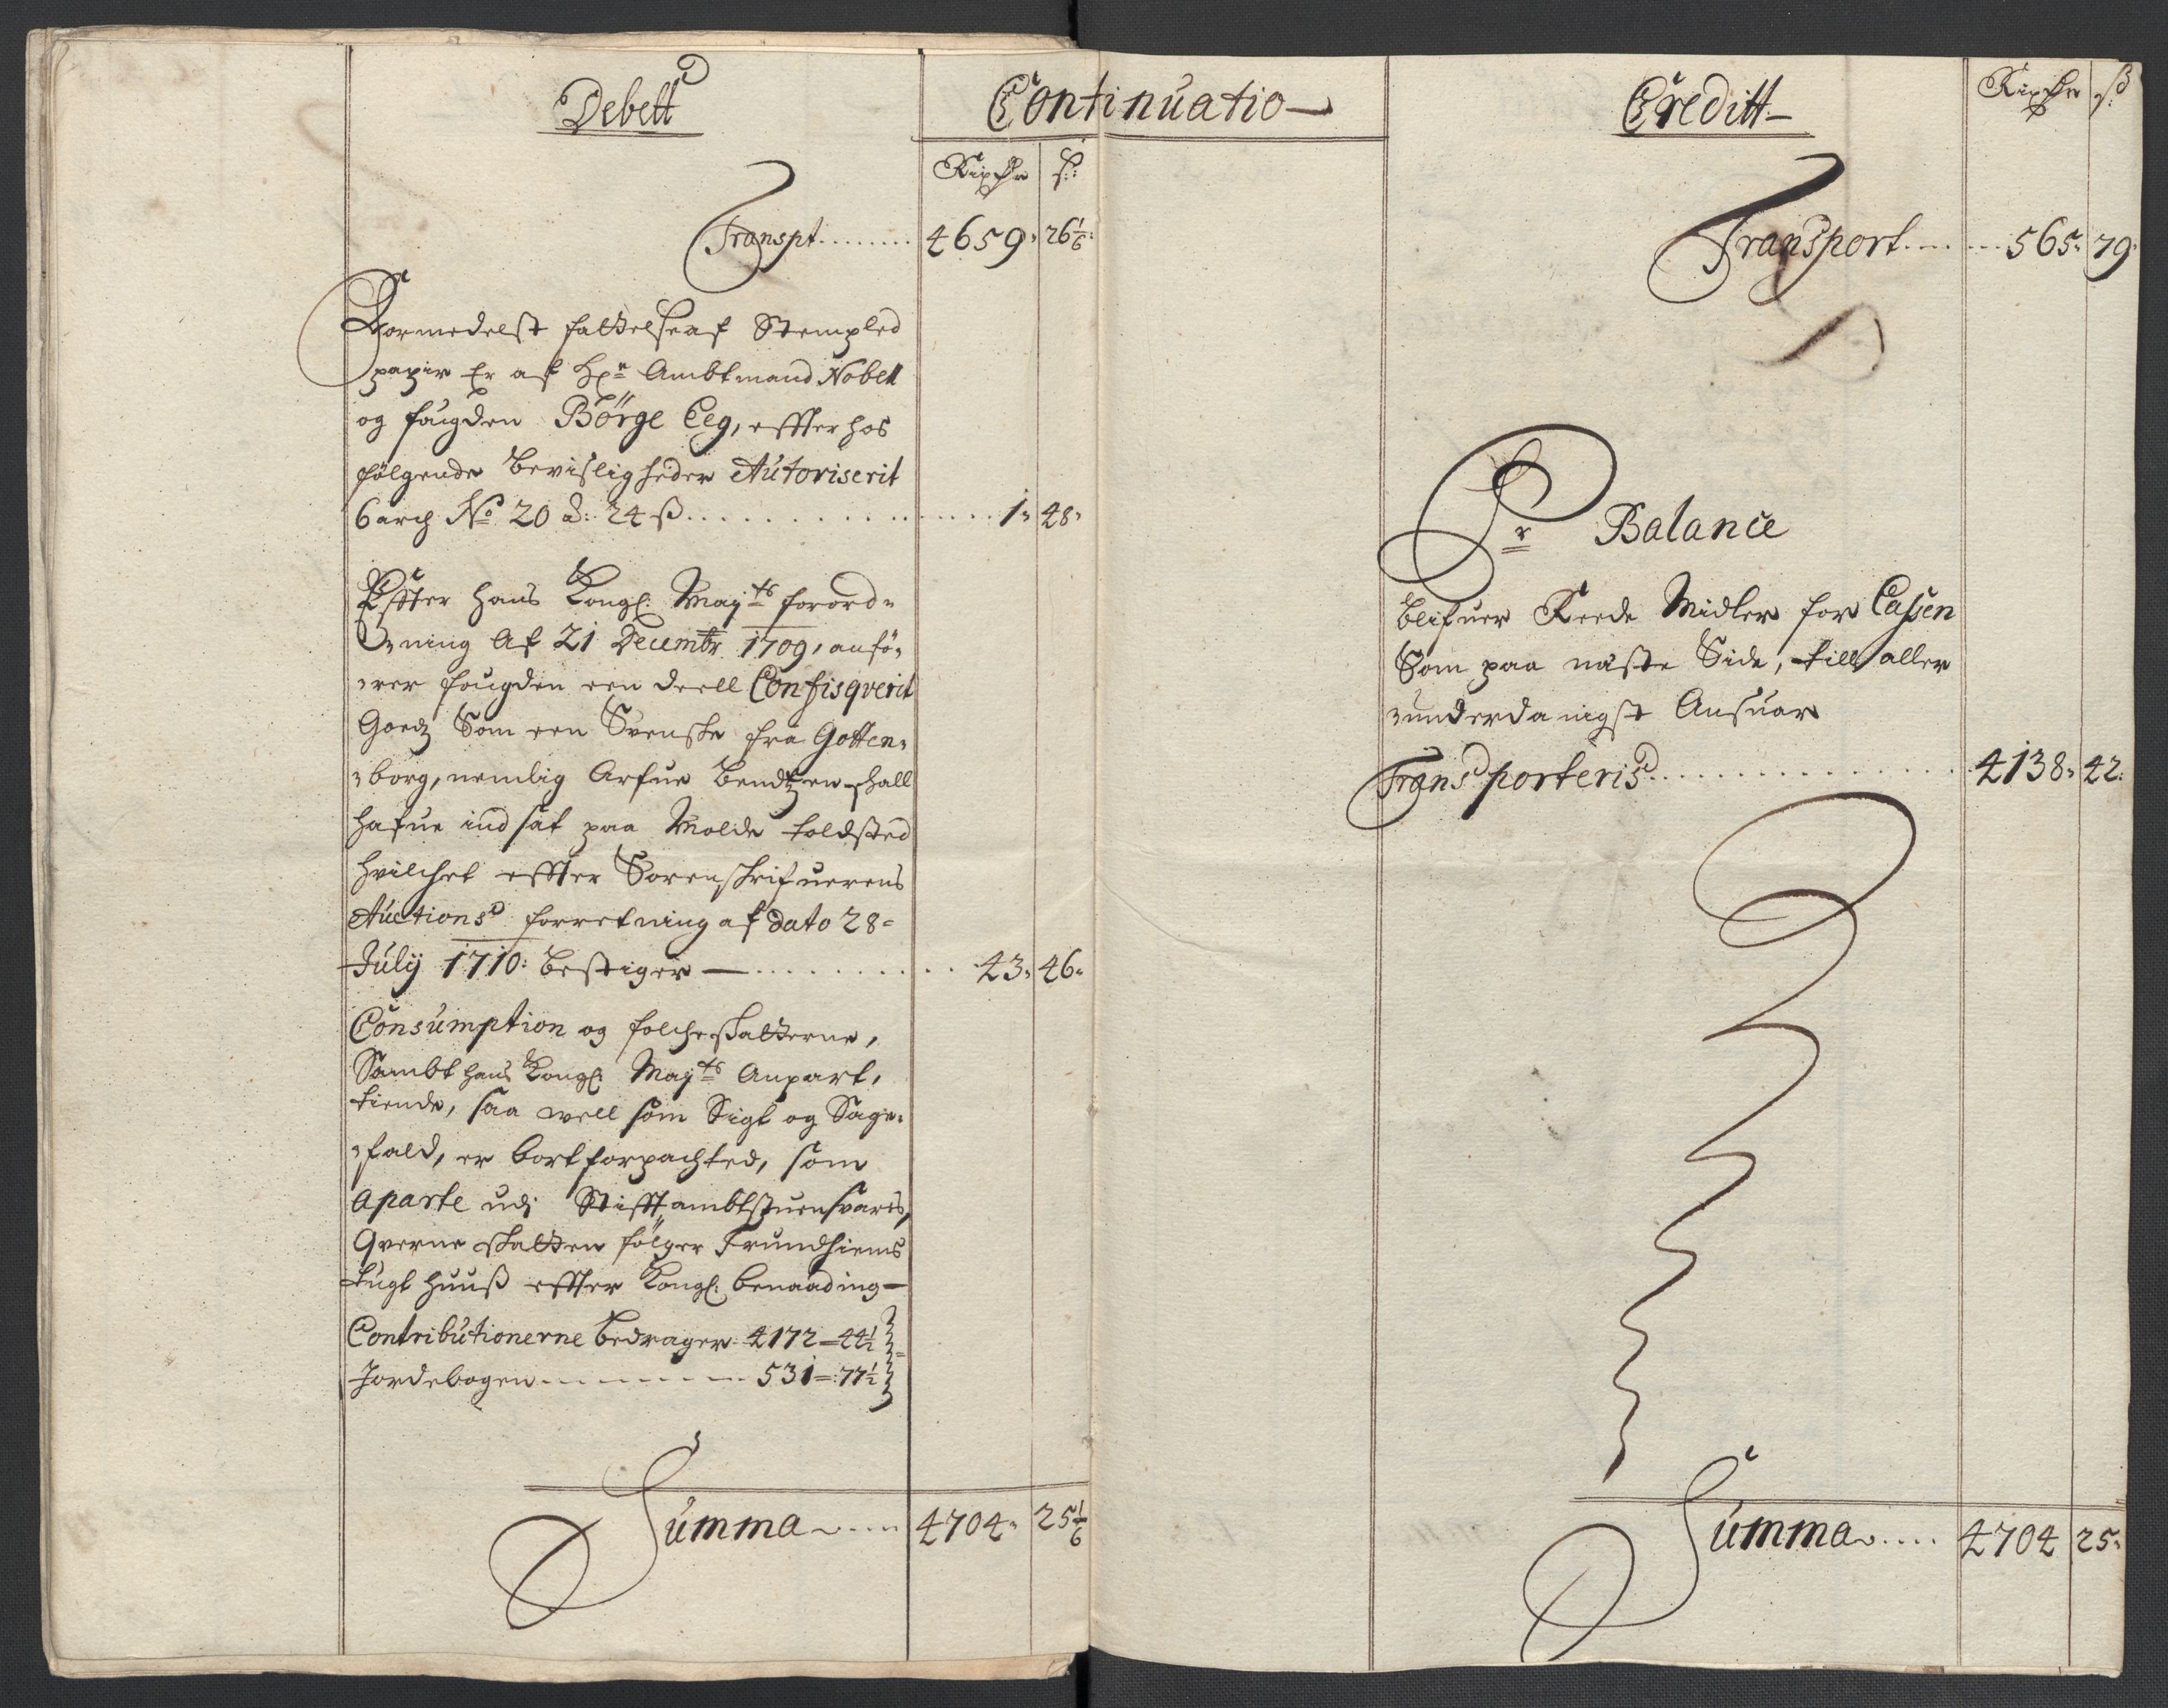 Debett
Continuatio
Rixdr ß:
Transpt........ 4659: 26 1/6:
Formedelst fattelse af Stempled
papir Er af Hr Ambtmand Nobell
og fougden Börge Eeg, effter hos
fölgende bevisligheder Autoriserit
6 arch No 20 a: 24 ß............ 1: 48:
Effter Hans Kongl: Mayts forord-
ning Af 21 Decembr 1709, anfö-
rer fougden een deell Confisqverit
Goedz Som een Svenske fra Gotten-
borg, nemlig Arfue Bendtzen schall
hafue indsat paa Molde toldsted
hvilchet effter Sorenskrifuerens
Auctions forretning af dato 28=
July 1710: bestiger — .......... 43: 46:
Consumption og folcheskatterne,
Sambt hans Kongl: Mayts Anpart,
tiende, saa well som Sigt og Sage-
fald, er bortforpachted, som
aparte udj Stifftambtstuen svaris,
Qverne skatten fölger Trundhiems
tugt huuß effter Kongl: benaading—
Contributionerne bedrager 4172=44 1/2
Jordebogen-------- 531=:77 1/2
Summa..... 4704: 25 1/6
Creditt
Rixdr ß
Transport..... 565: 79:
Pr Balance
blifuer Reede Midler for Cassen
Som paa näste Side, till aller
underdanigst Ansuar
Transporteris............ 4138: 42:
Summa..... 4704 25: